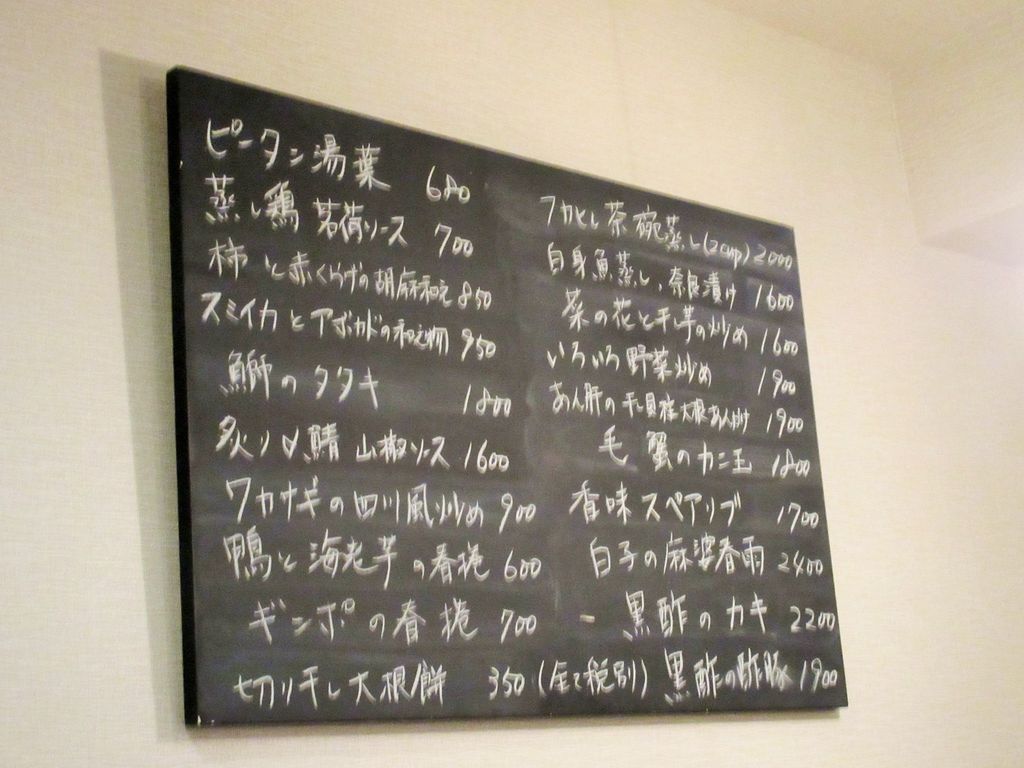 ピータン湯葉 680
蒸し鶏 茗荷ソース 700
柿と赤くらげの胡麻和え 850
スミイカとアボカドの和え物 950
鰤のタタキ 1800
炙り〆鯖 山椒ソース 1600
ワカサギの四川風炒め 900
鴨と海老芋の春捲 600
ギンポの春捲 700
切り干し大根餅 350 (全て税別)
フカヒレ茶碗蒸し(2cup) 2000
白身魚蒸し、奈良漬け 1600
菜の花と干芋の炒め 1600
いろいろ野菜炒め 1900
あん肝の干し貝柱大根あんかけ 1900
毛蟹のカニ玉 1800
香味スペアリブ 1700
白子の麻婆春雨 2400
黒酢のカキ 2200
黒酢の酢豚 1900